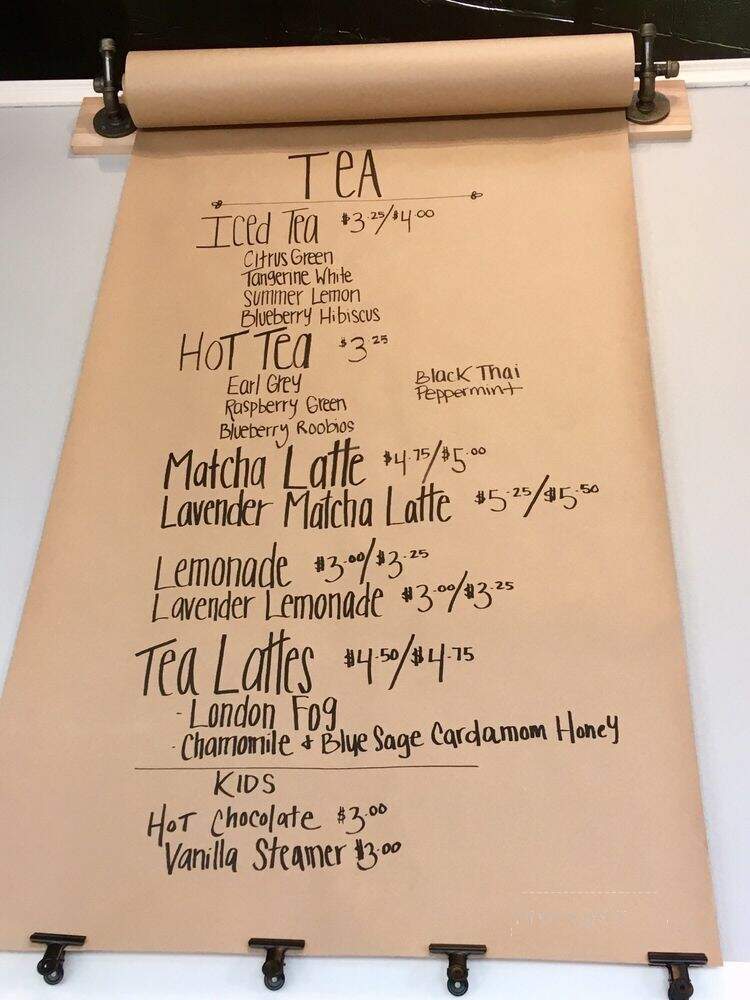 TEA
Iced Tea $3.25/$4.00
Citrus Green
Tangerine White
Summer Lemon
Blueberry Hibiscus
Hot Tea $3.25
Earl Grey
Raspberry Green
Blueberry Roobios
Black Thai
Peppermint
Matcha Latte $4.75/$5.00
Lavender Matcha Latte $5.25/$5.50
Lemonade $3.00/$3.25
Lavender Lemonade $3.00/$3.25
Tea Lattes $4.50/$4.75
- London Fog
- Chamomile + Blue Sage Cardamom Honey
KIDS
Hot Chocolate $3.00
Vanilla Steamer $3.00